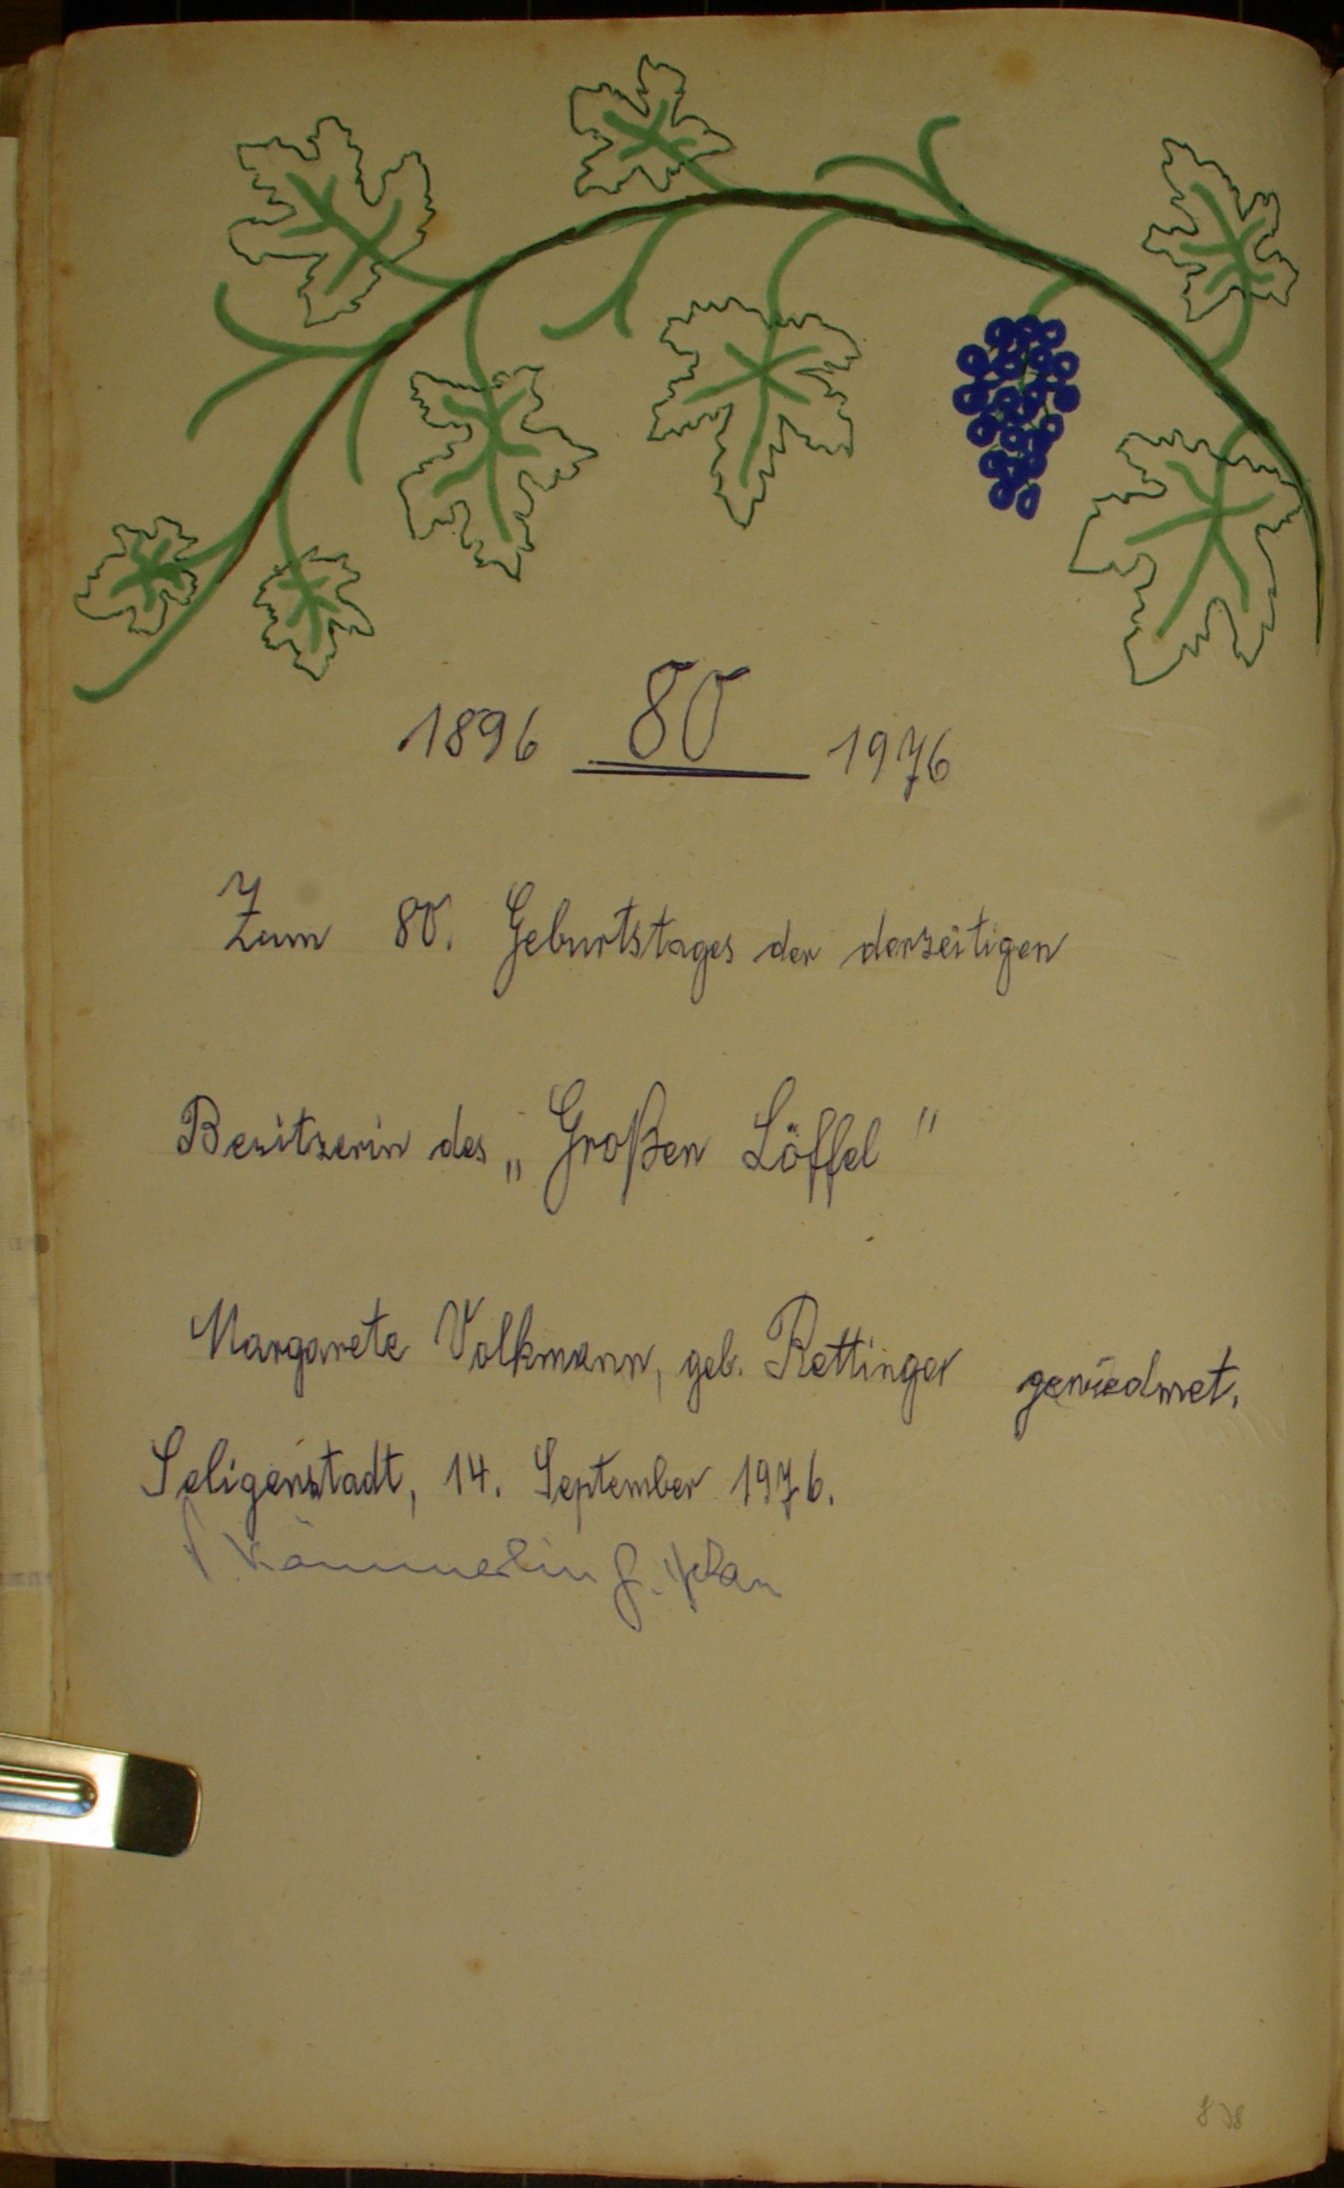 1896 80 1976
Zum 80. Geburtstages der derzeitigen
Besitzerin des „Großen Löffel"
Margarete Volkmann, geb. Rettinger gewiedmet.
Seligenstadt, 14. September 1976.